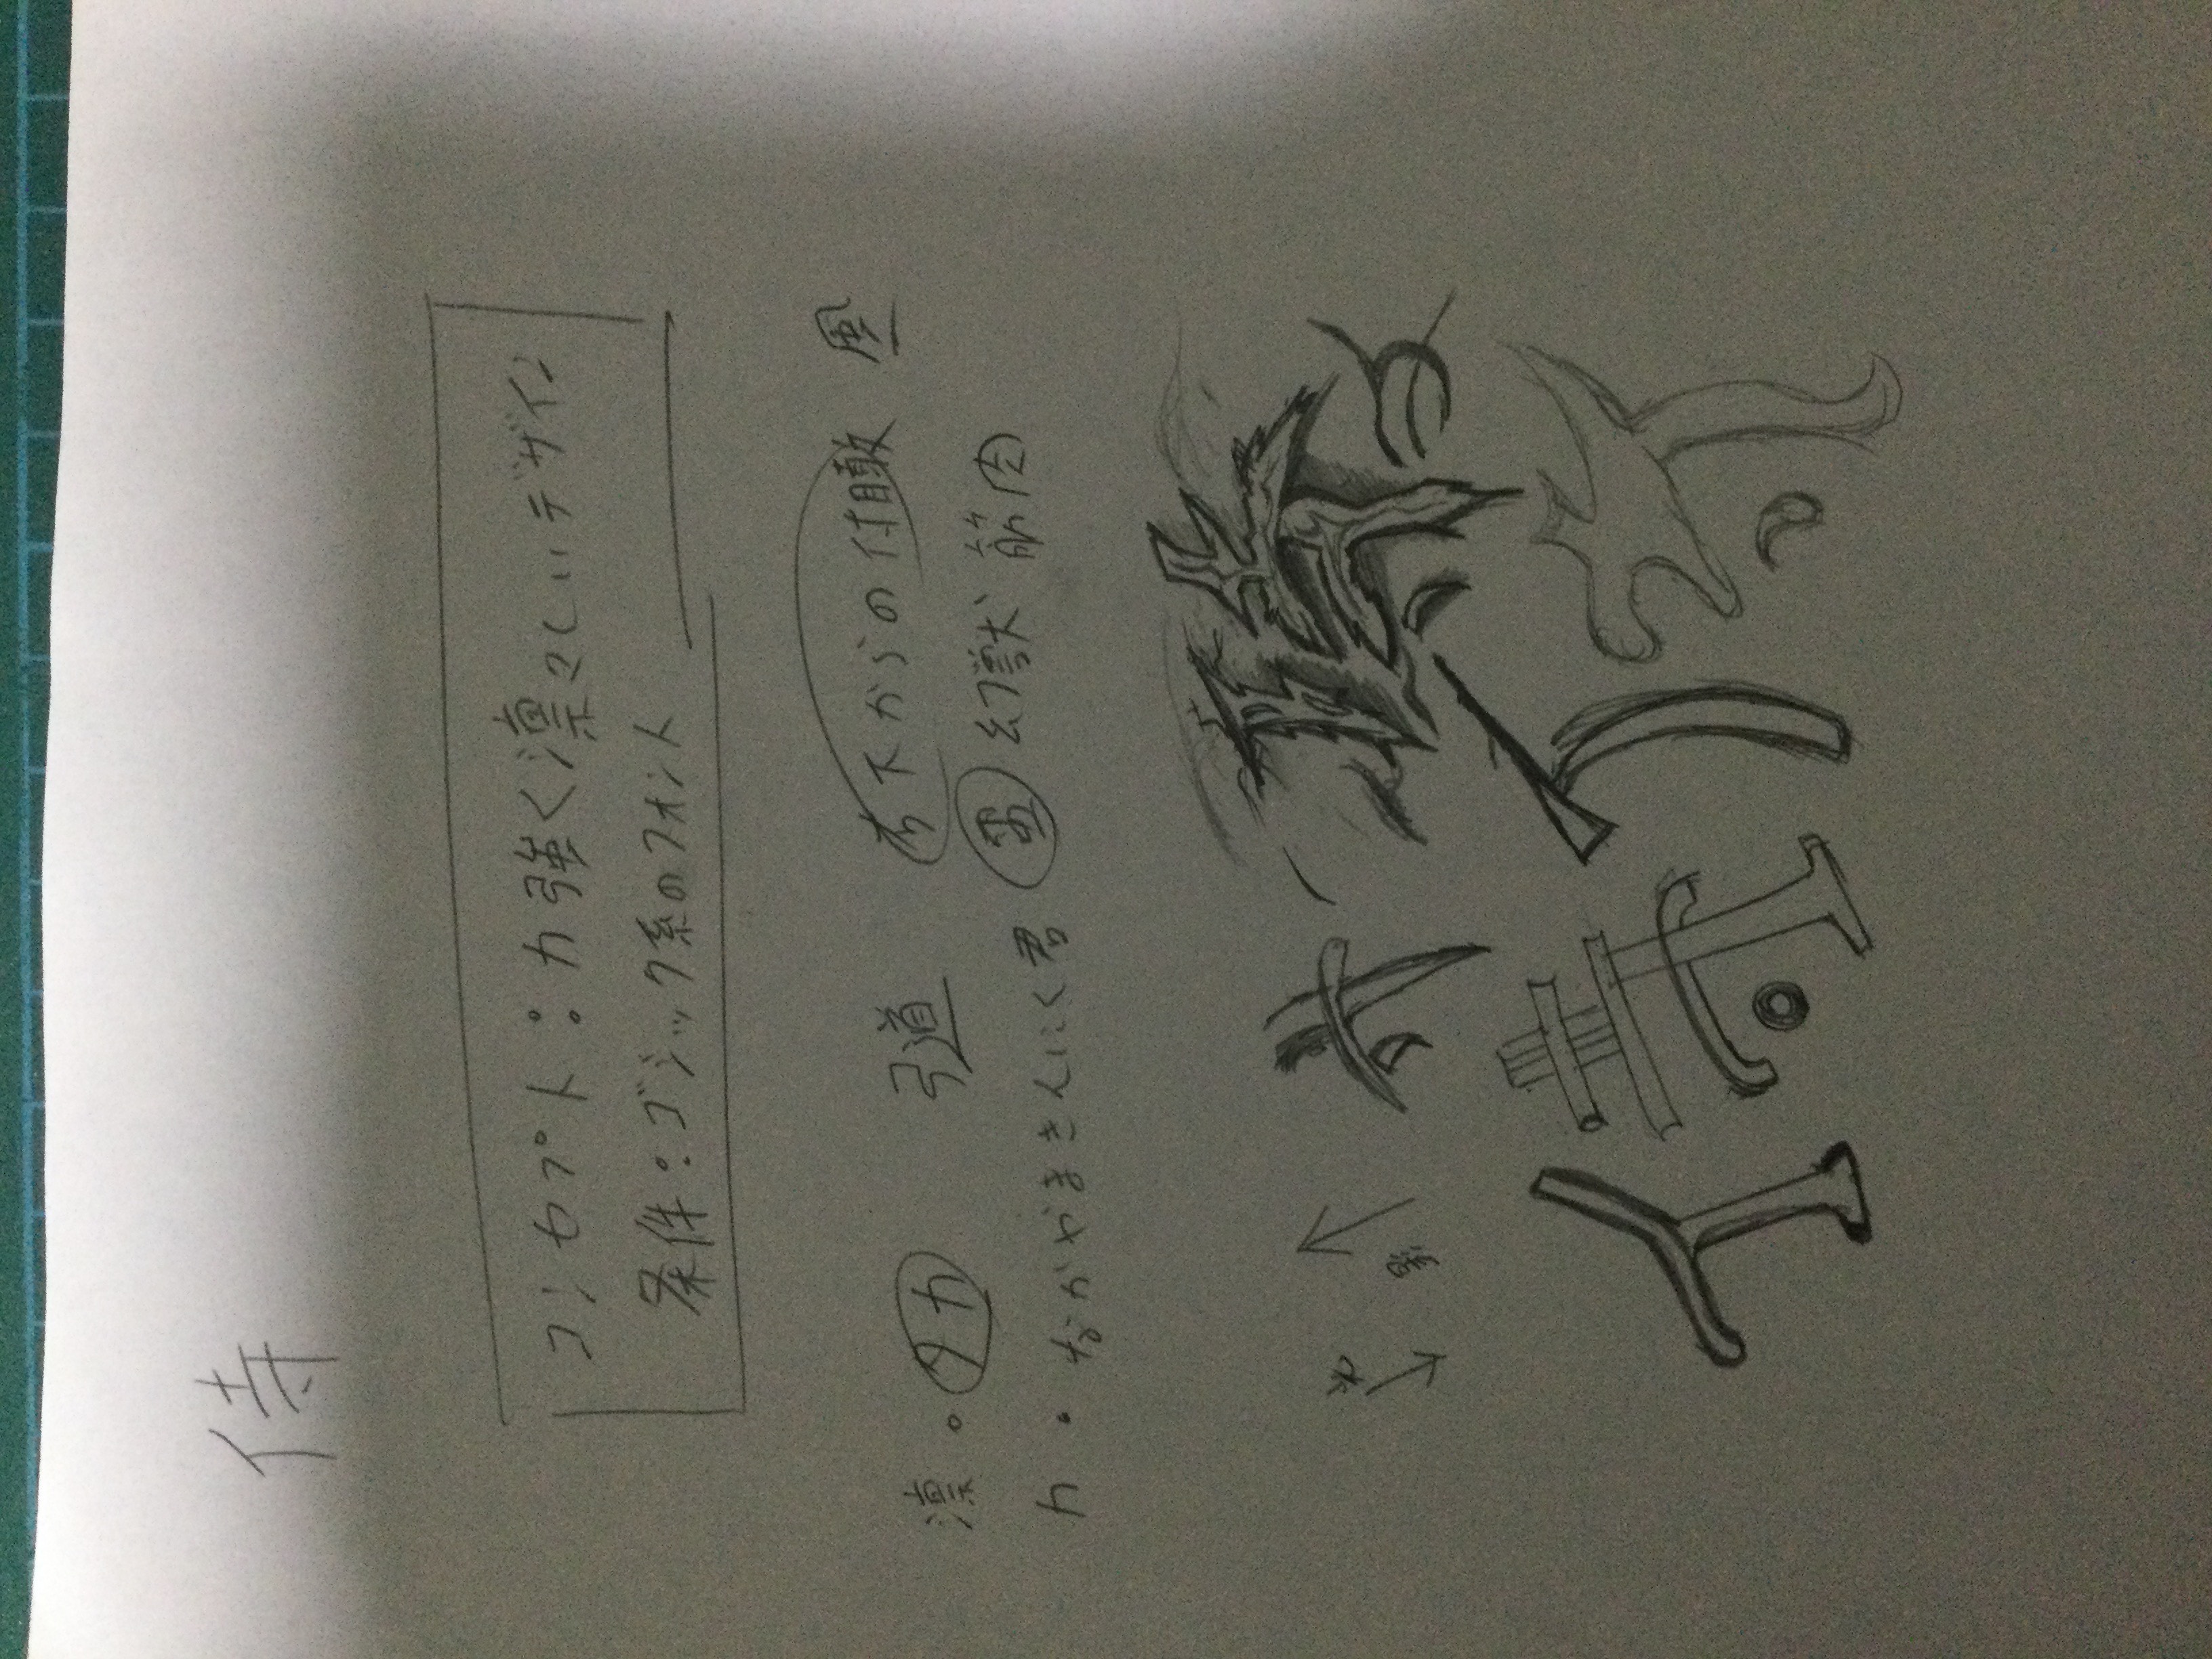 侍
コンセプト:力強く凛々しいデザイン
条件:ゴシック系のフォント
凛・タカ 弓道 右下からの付瞰 風
力・なかやまきんにく君 幻獣 筋肉
光
影
侍
侍
侍